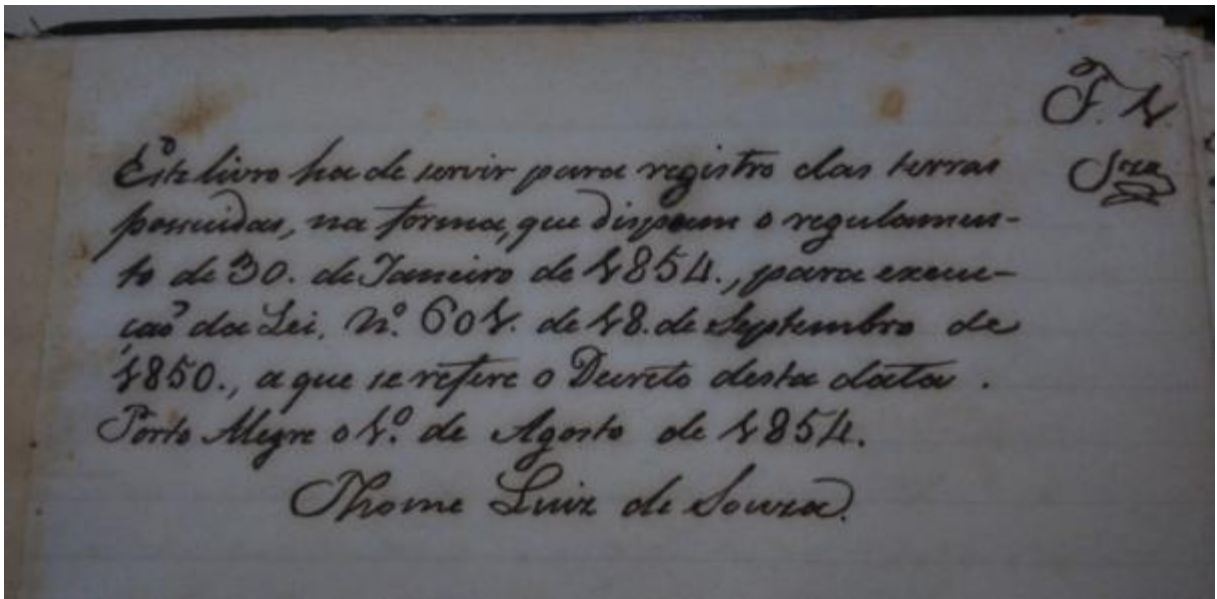 F. 1.
Este livro ha de servir para registro das terras
Sza
possuidas, na forma, que dispoem o regulamen-
to de 30. de Janeiro de 1854., para execu-
caõ da Lei. Nº. 601. de 18. de Septembro de
1850., a que se refere o Decreto desta data.
Porto Alegre o 1º. de Agosto de 1854.
Thome Luiz de Souza.